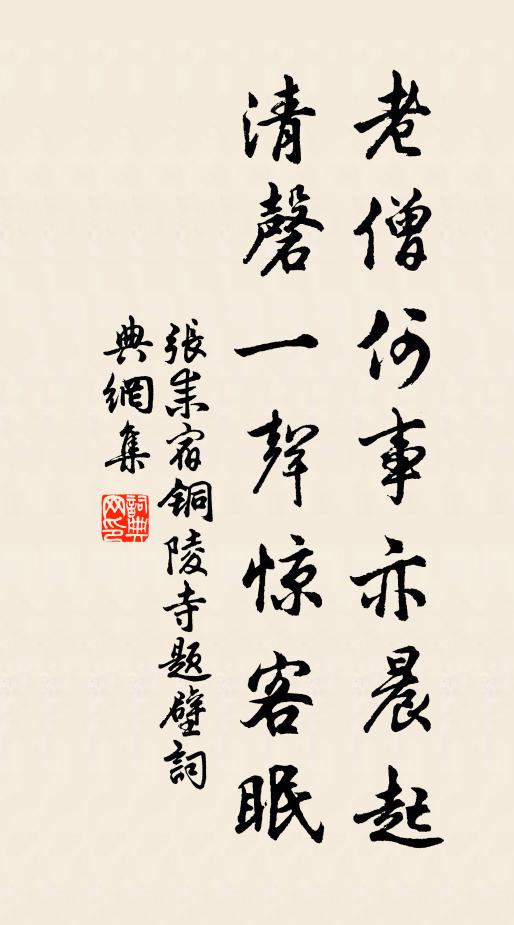 老僧何事亦晨起
清磬一聲惊客眠
張耒宿铜陵寺题壁詞
典網集
詞典
网印